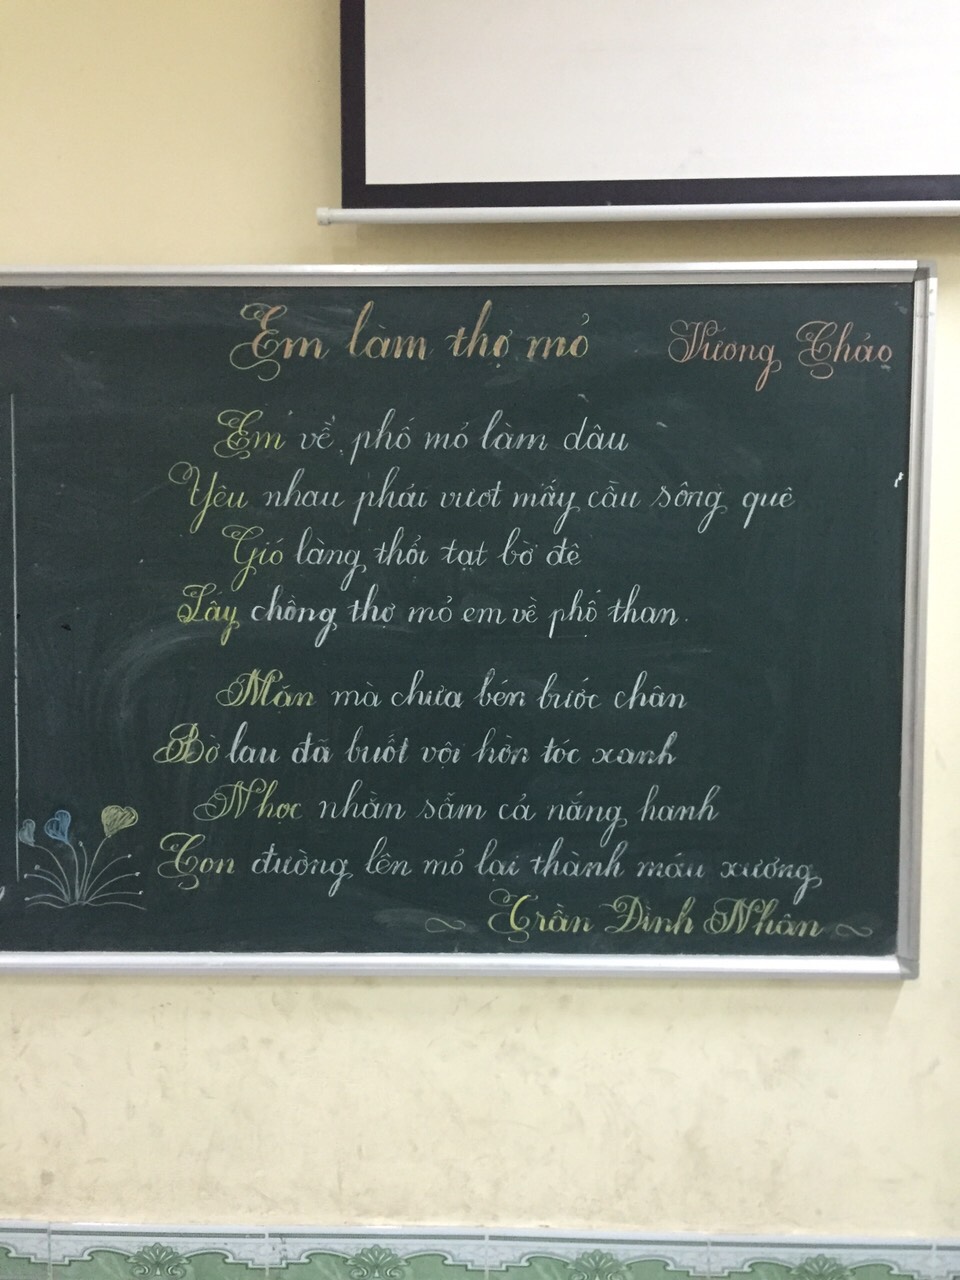 Em làm thợ mỏ
Hương Thảo
Em về phố mỏ làm dâu
Yêu nhau phải vượt mấy cầu sông quê
Gió làng thổi tạt bờ đê
Lấy chồng thợ mỏ em về phố than.
Mặn mà chưa bén bước chân
Bờ lau đã buốt vội hờn tóc xanh
Nhọc nhằn sẫm cả nắng hanh
Con đường lên mỏ lại thành máu xương
Trần Đình Nhân